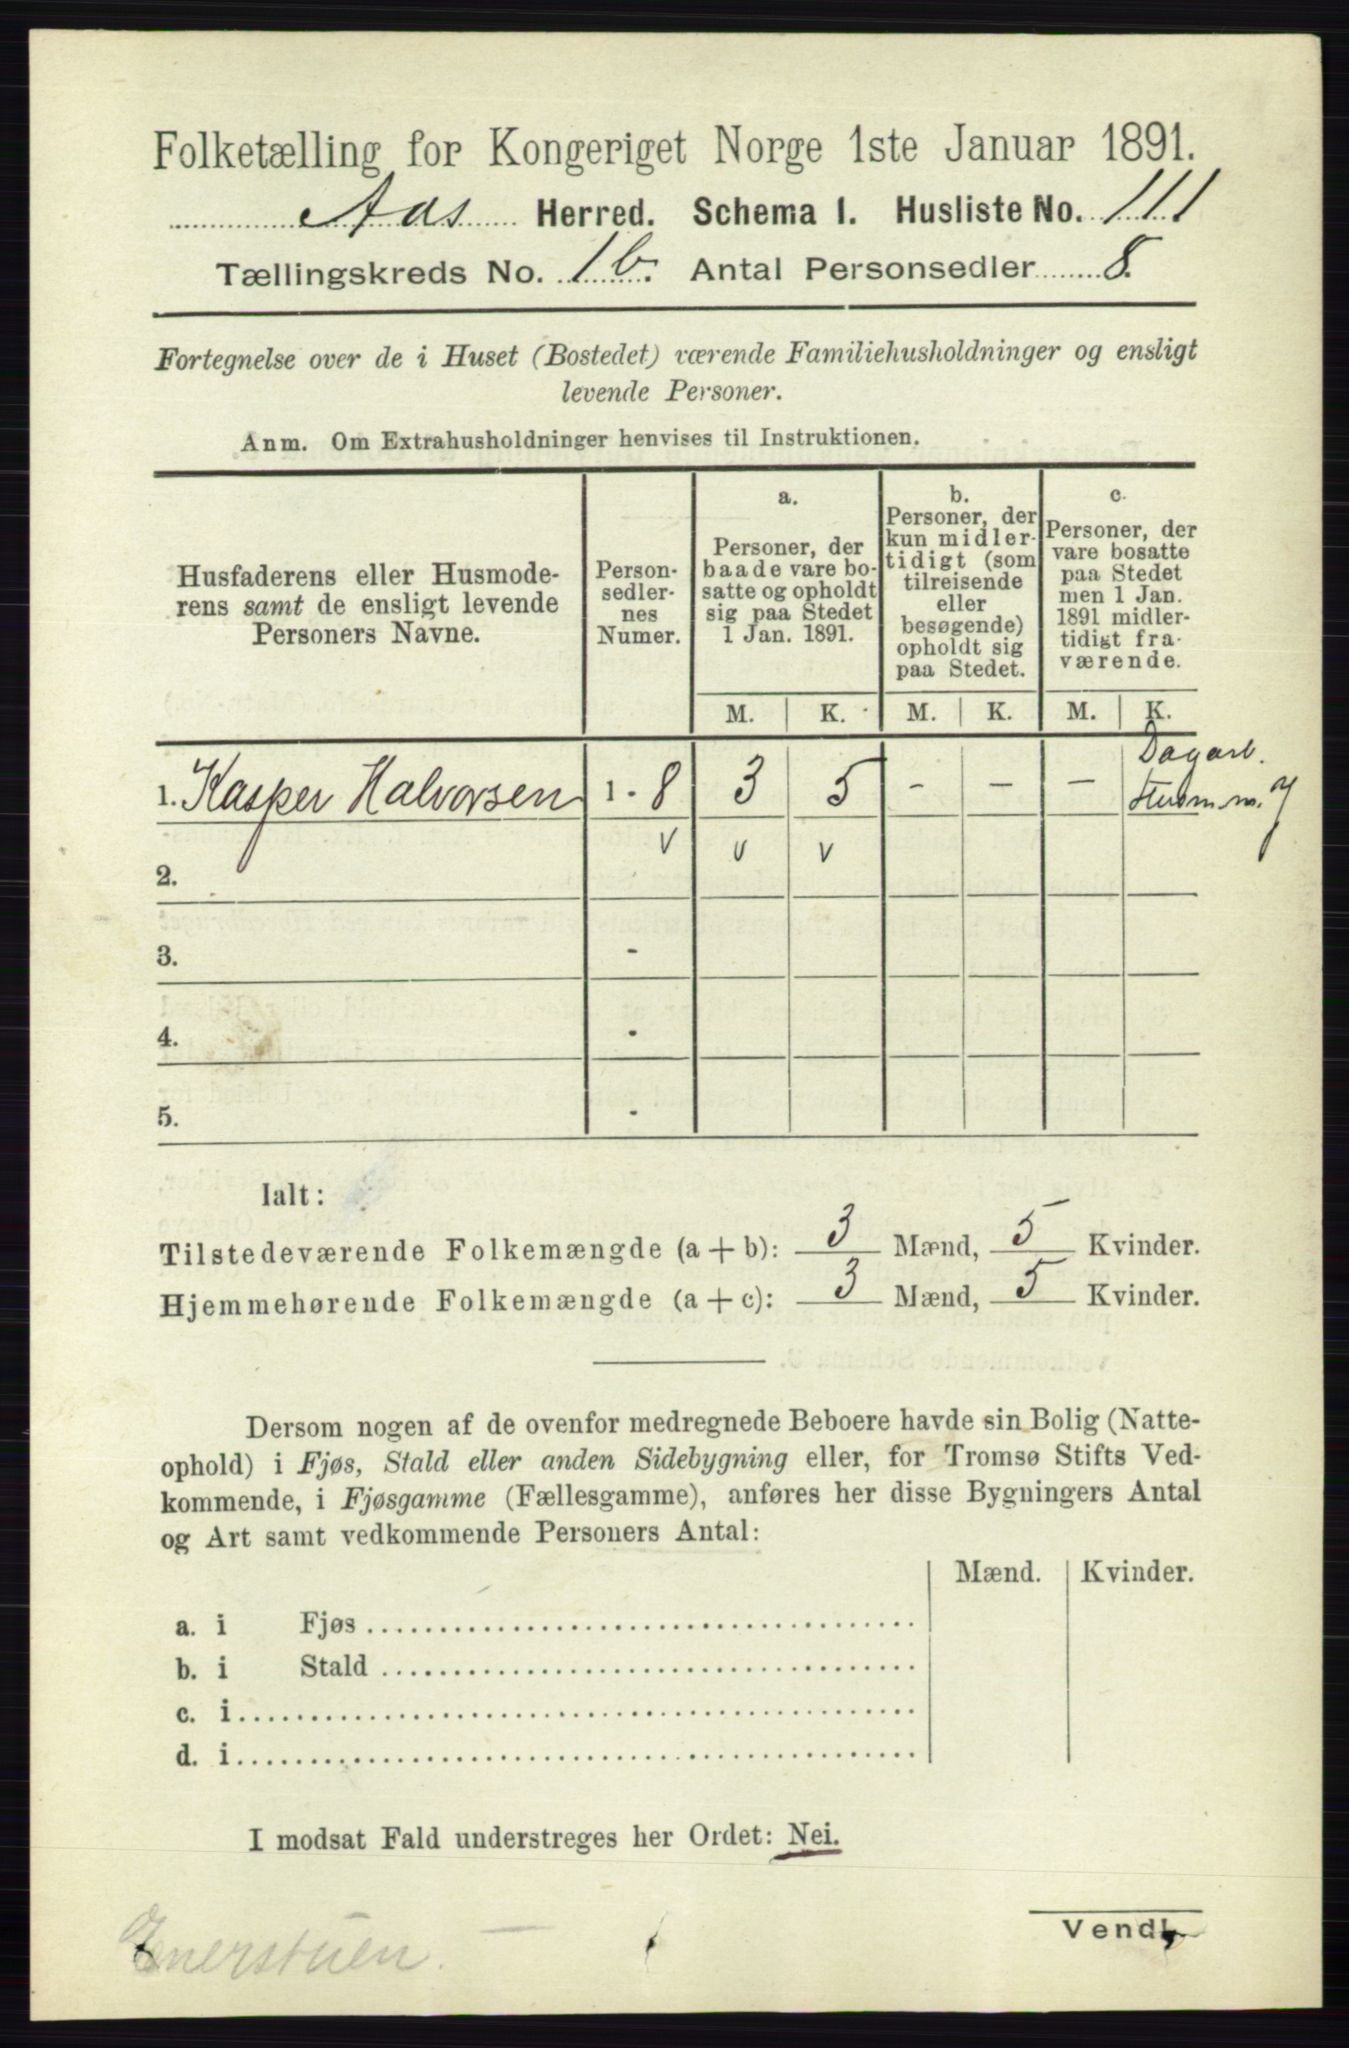 Folketælling for Kongeriget Norge 1ste Januar 1891.
Aas Herred. Schema I. Husliste No. 111
Tællingskreds No. 1b. Antal Personsedler 8.
Fortegnelse over de i Huset (Bostedet) værende Familiehusholdninger og ensligt
levende Personer.
Anm. Om Extrahusholdninger henvises til Instruktionen.
Husfaderens eller Husmode-
rens samt de ensligt levende
Personers Navne.
Person-
sedler-
nes
Numer.
a.
Personer, der
baade vare bo-
satte og opholdt
sig paa Stedet
1 Jan. 1891.
b.
Personer, der
kun midler-
tidigt (som
tilreisende
eller
besøgende)
opholdt sig
paa Stedet.
c.
Personer, der
vare bosatte
paa Stedet
men 1 Jan.
1891 midler-
tidigt fra-
værende.
M. K. M. K. M. K.
Dagarb.
1. Kasper Halvorsen 1 - 8 3 5 - - -
v v v
2.
3. -
4. -
5. -
Ialt:
Tilstedeværende Folkemængde (a + b): 3 Mænd, 5 Kvinder.
Hjemmehørende Folkemængde (a + c): 3 Mænd, 5 Kvinder.
Dersom nogen af de ovenfor medregnede Beboere havde sin Bolig (Natte-
ophold) i Fjøs, Stald eller anden Sidebygning eller, for Tromsø Stifts Ved-
kommende, i Fjøsgamme (Fællesgamme), anføres her disse Bygningers Antal
og Art samt vedkommende Personers Antal:
Mænd. Kvinder.
a. i Fjøs
b. i Stald
c. i
d. i
I modsat Fald understreges her Ordet: Nei.
Vend!
Enerstuen.